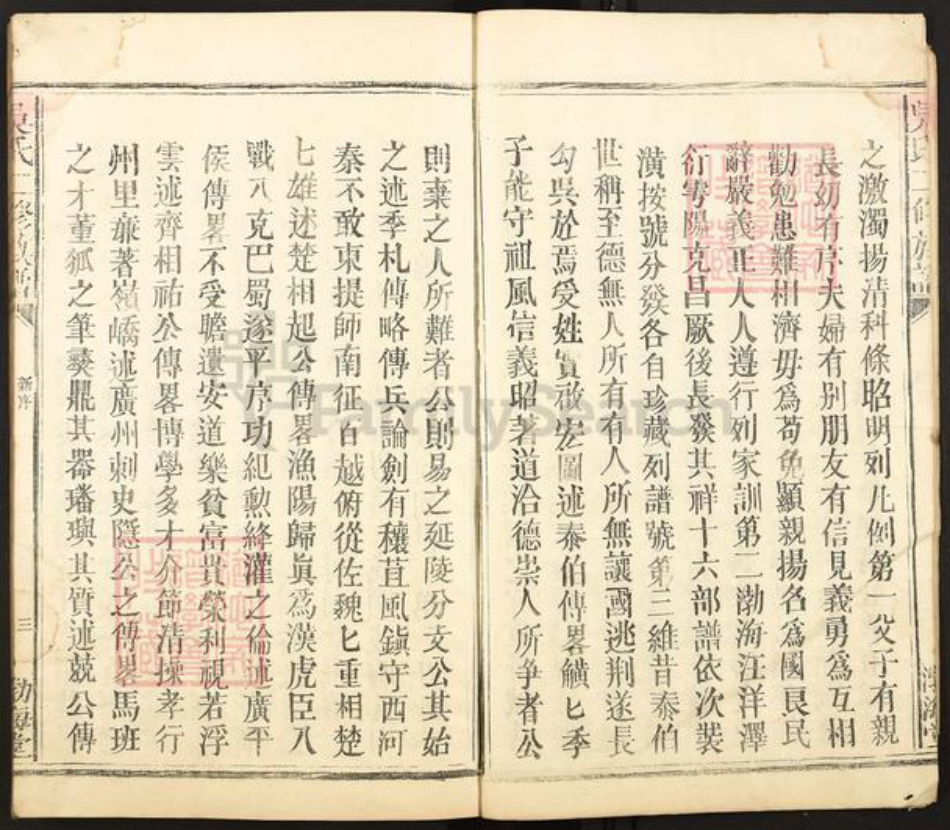 之激濁揚清科條昭明列凡例第一父子有親
長幼有序夫婦有别朋友有信見義勇爲互相
勸勉患難相濟毋爲苟免顯親揚名爲國良民
辭嚴義正人人遵行列家訓第二渤海汪洋澤
衍雩陽克昌厥後長發其祥十六部譜依次裝
潢按號分發各自珍藏列譜號第三維昔泰伯
世稱至德無人所有有人所無讓國逃荆遂長
勾吳於焉受姓實啟宏圖述泰伯傳畧續七季
子能守祖風信義昭著道洽德崇人所爭者公
則棄之人所難者公則易之延陵分支公其始
之述季札傳略傳兵論劍有穰苴風鎭守西河
秦不敢東提師南征百越俯從佐魏七重相楚
七雄述楚相起公傳畧漁陽歸眞爲漢虎臣八
戰八克巴蜀遂平序功紀勲絳灌之倫述廣平
侯傳畧不受贍遺安道樂貧富貴榮利視若浮
雲述齊相祐公傳畧博學多才介節清操孝行
州里兼著嶺嶠述廣州刺史隱公之傳畧馬班
之才董狐之筆彝鼎其器璠璵其質述兢公傳
吳氏二修族譜
新序
三
渤海堂
FamilySearch